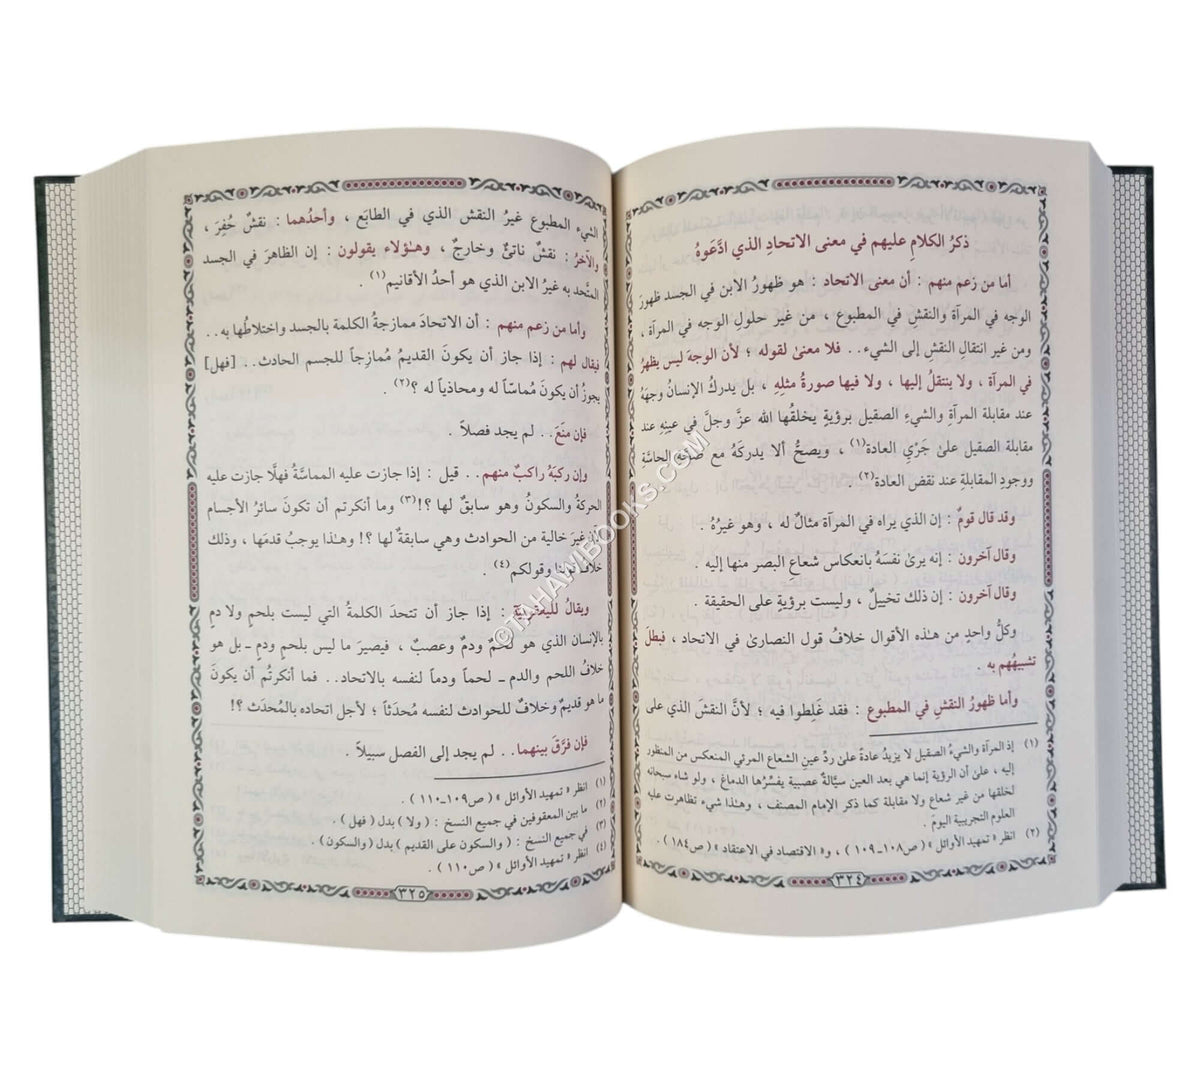 ذكرُ الكلامِ عليهم في معنى الاتحادِ الذي ادَّعَوهُ
أما من زعم منهم : أن معنى الاتحاد : هو ظهورُ الابن في الجسد ظهورَ
الوجه في المرآة والنقشِ في المطبوع ، من غير حلول الوجه في المرآة ،
ومن غير انتقال النقش إلى الشيء.. فلا معنىٰ لقوله ؛ لأن الوجهَ ليس يظهرُ
في المرآة ، ولا ينتقلُ إليها ، ولا فيها صورةُ مثلِهِ ، بل يدركُ الإنسانُ وجهَهُ
عند مقابلة المرآة والشيءِ الصقيل برؤيةٍ يخلقُها الله عزَّ وجلَّ في عينِهِ عند
مقابلة الصقيل علىٰ جَرْيِ العادة(١) ، ويصحُّ ألا يدركَهُ مع صحَّة الحاسَّةِ
ووجودِ المقابلةِ عند نقضِ العادة(٢) .
وقد قال قومٌ : إن الذي يراه في المرآة مثالٌ له ، وهو غيرُهُ .
وقال آخرون : إنه يرىٰ نفسَهُ بانعكاس شعاعِ البصر منها إليه .
وقال آخرون : إن ذلك تخييلٌ ، وليست برؤيةٍ على الحقيقة .
وكلُّ واحدٍ من هـٰذه الأقوال خلافُ قول النصارىٰ في الاتحاد ، فبطلَ
تشبيهُهم به .
وأما ظهورُ النقشِ في المطبوع : فقد غَلِطوا فيه ؛ لأنَّ النقشَ الذي على
(١) إذ المرآة والشيءُ الصقيل لا يزيدُ عادةً علىٰ ردِّ عينِ الشعاع المرئي المنعكس من المنظور
إليه ، علىٰ أن الرؤية إنما هي بعد العين سيَّالةٌ عصبية يفسِّرُها الدماغ ، ولو شاء سبحانه
لخلقها من غير شعاع ولا مقابلة كما ذكر الإمام المصنف ، وهـٰذا شيء تظاهرت عليه
العلوم التجريبية اليومَ .
(٢) انظر « تمهيد الأوائل » ( ص١٠٨ـ١٠٩ ) ، و« الاقتصاد في الاعتقاد » ( ص١٨٤ ) .
٣٢٤
الشيء المطبوع غيرُ النقش الذي في الطابَع ، وأحدُهما : نقشٌ حُفِرَ ،
والآخرُ : نقشٌ ناتئٌ وخارجٌ ، وهـٰؤلاء يقولون : إن الظاهرَ في الجسد
المتَّحد به غيرُ الابن الذي هو أحدُ الأقانيم(١) .
وأما من زعم منهم : أن الاتحادَ ممازجةُ الكلمة بالجسد واختلاطُها به..
فيقال لهم : إذا جاز أن يكونَ القديمُ مُمازِجاً للجسم الحادث.. [فهل]
يجوزُ أن يكونَ مُماسّاً له ومحاذياً له ؟(٢) .
فإن منَعَ.. لم يجد فصلاً .
وإن ركبَهُ راكبٌ منهم.. قيل : إذا جازت عليه المماسَّةُ فهلَّا جازت عليه
الحركةُ والسكونُ وهو سابقٌ لها ؟!(٣) وما أنكرتم أن تكونَ سائرُ الأجسام
غيرَ خالية من الحوادث وهي سابقةٌ لها ؟! وهـٰذا يوجبُ قدمَها ، وذلك
خلافُ قولنا وقولكم(٤) .
ويقالُ لليعقوبيَّةِ : إذا جاز أن تتحدَ الكلمةُ التي ليست بلحم ولا دمٍ
بالإنسان الذي هو لحمٌ ودمٌ وعصبٌ ، فيصيرَ ما ليس بلحمٍ ودمٍ ـ بل هو
خلافُ اللحم والدم ـ لحماً ودماً لنفسه بالاتحاد.. فما أنكرتُم أن يكونَ
ما هو قديمٌ وخلافٌ للحوادث لنفسه مُحدَثاً ؛ لأجل اتحاده بالمُحدَث ؟!
فإن فرَّقَ بينهما.. لم يجد إلى الفصل سبيلاً .
(١) انظر « تمهيد الأوائل » ( ص١٠٩ـ١١٠ ) .
(٢) ما بين المعقوفين في جميع النسخ : ( ولا ) بدل ( فهل ) .
(٣) في جميع النسخ : ( والسكون على القديم ) بدل ( والسكون ) .
(٤) انظر « تمهيد الأوائل » ( ص١١٠ ) .
٣٢٥
©TAHAWIBOOKS.COM